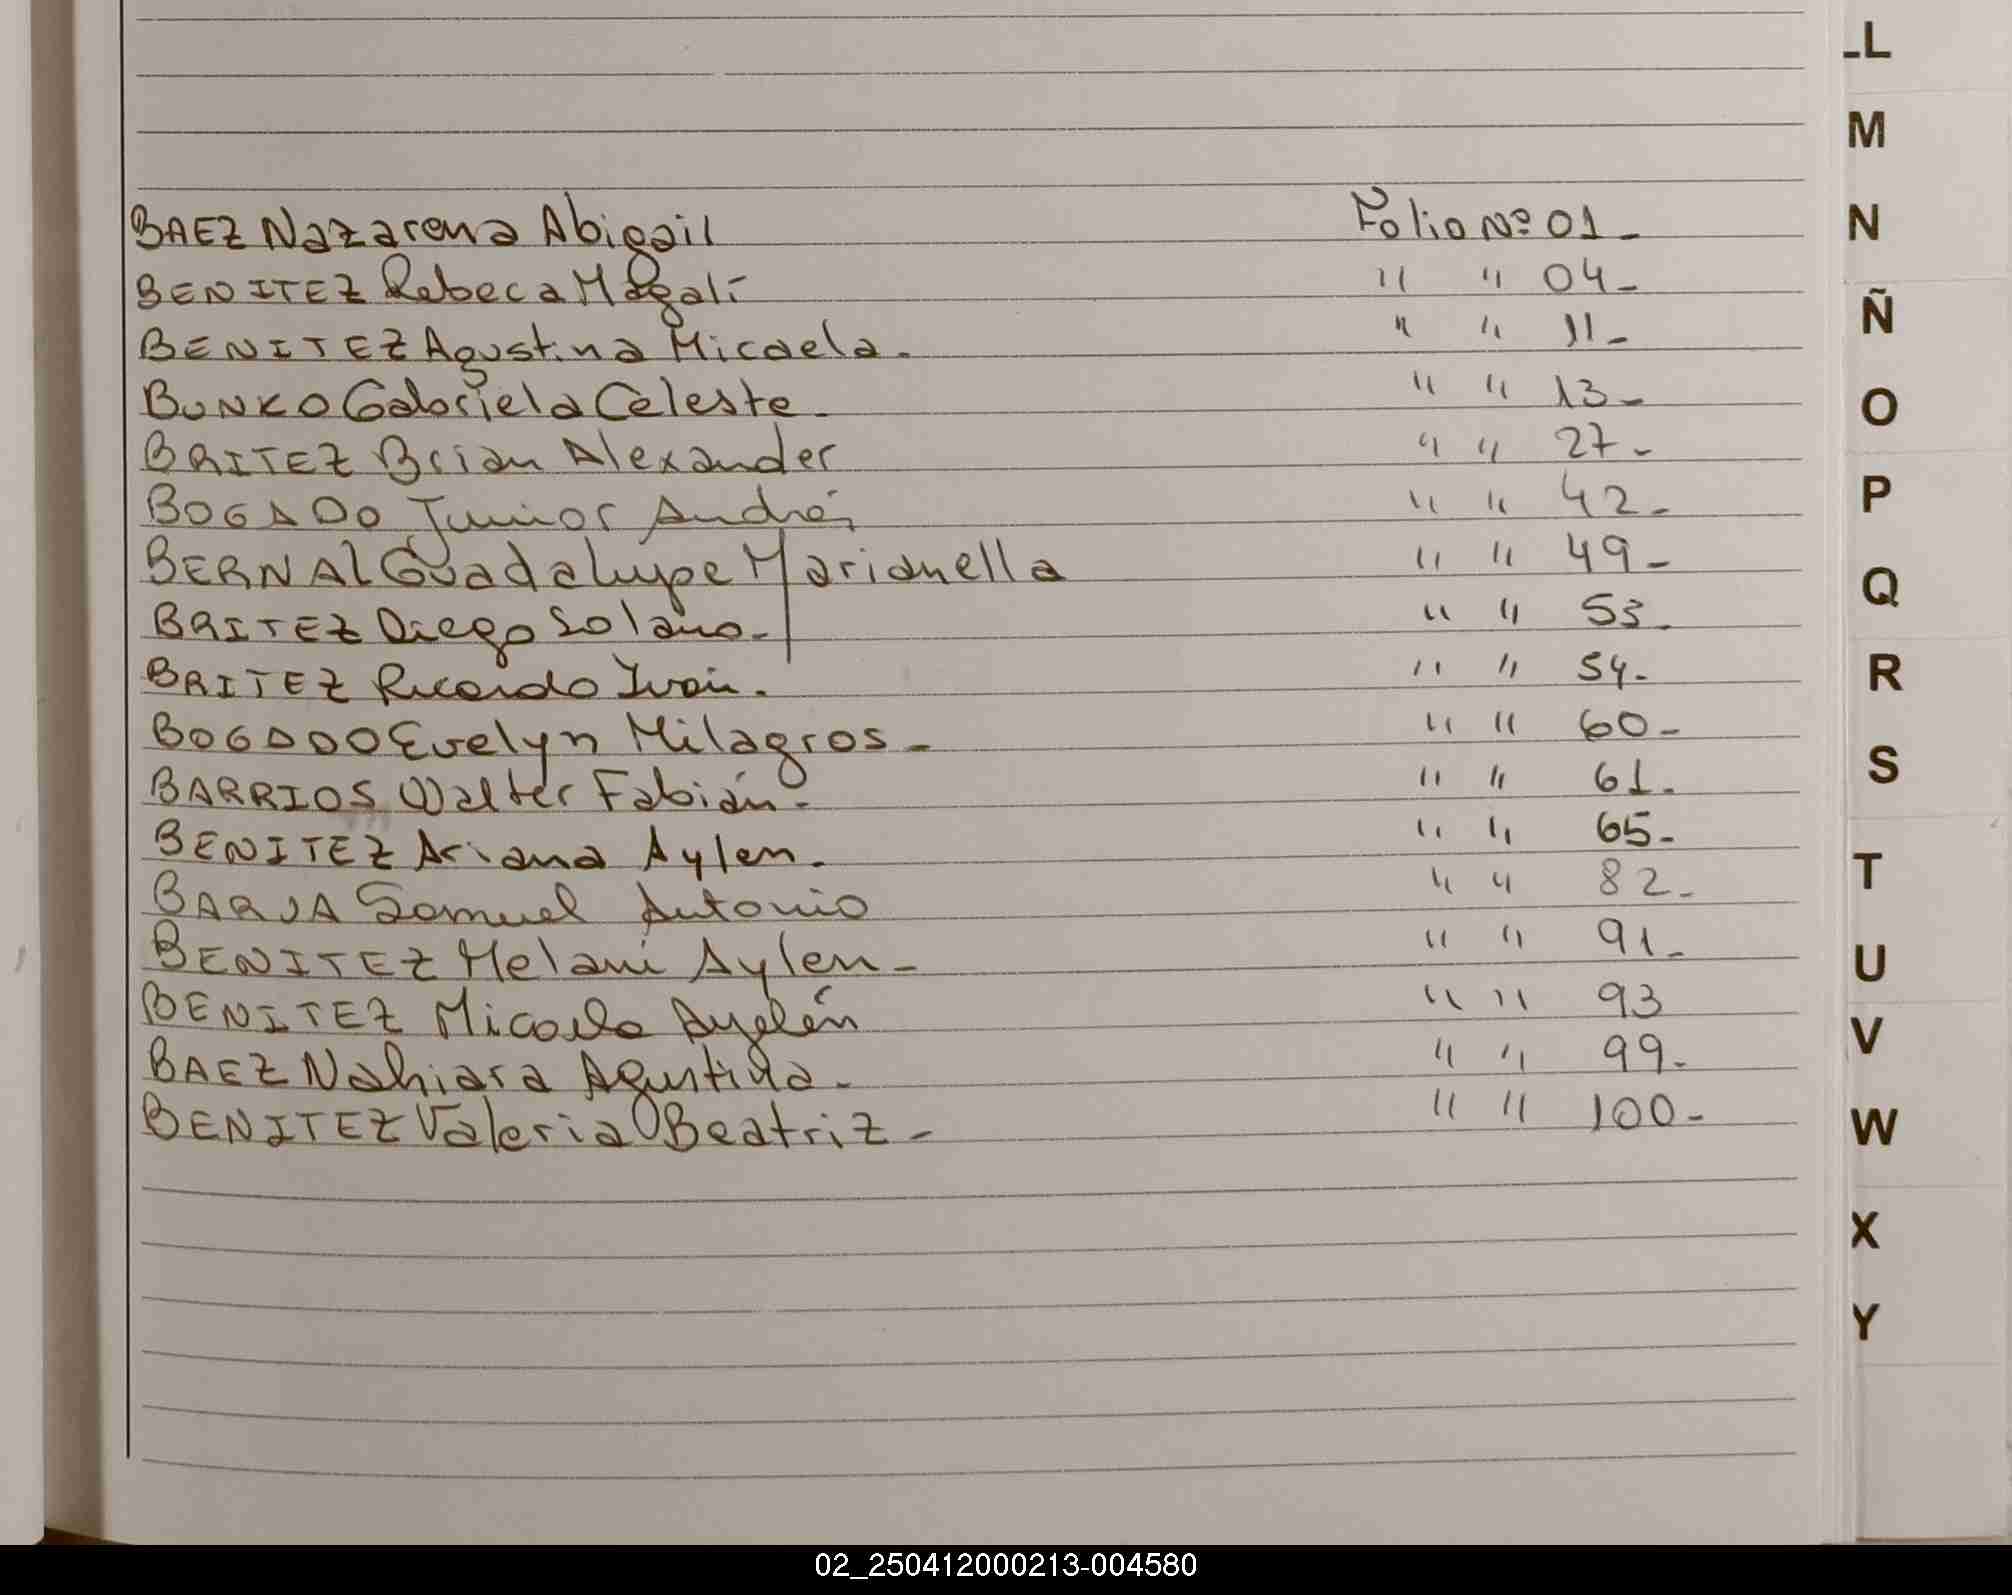 BAEZ Nazarena Abigail Folio Nº 01-
BENITEZ Rebeca Magalí " " 04-
BENITEZ Agustina Micaela. " " 11-
BUNKO Gabriela Celeste. " " 13-
BRITEZ Brian Alexander " " 27-
BOGADO Junior Andrés " " 42-
BERNAL Guadalupe Marianella " " 49-
BRITEZ Diego Solano- " " 53-
BRITEZ Ricardo Iván. " " 54-
BOGADO Evelyn Milagros- " " 60-
BARRIOS Walter Fabián- " " 61-
BENITEZ Ariana Aylen. " " 65-
BARUA Samuel Antonio " " 82-
BENITEZ Melani Aylen- " " 91-
BENITEZ Micaela Ayelén " " 93
BAEZ Nahiara Agustina- " " 99-
BENITEZ Valeria Beatriz- " " 100-
L
M
N
Ñ
O
P
Q
R
S
T
U
V
W
X
Y
02_250412000213-004580